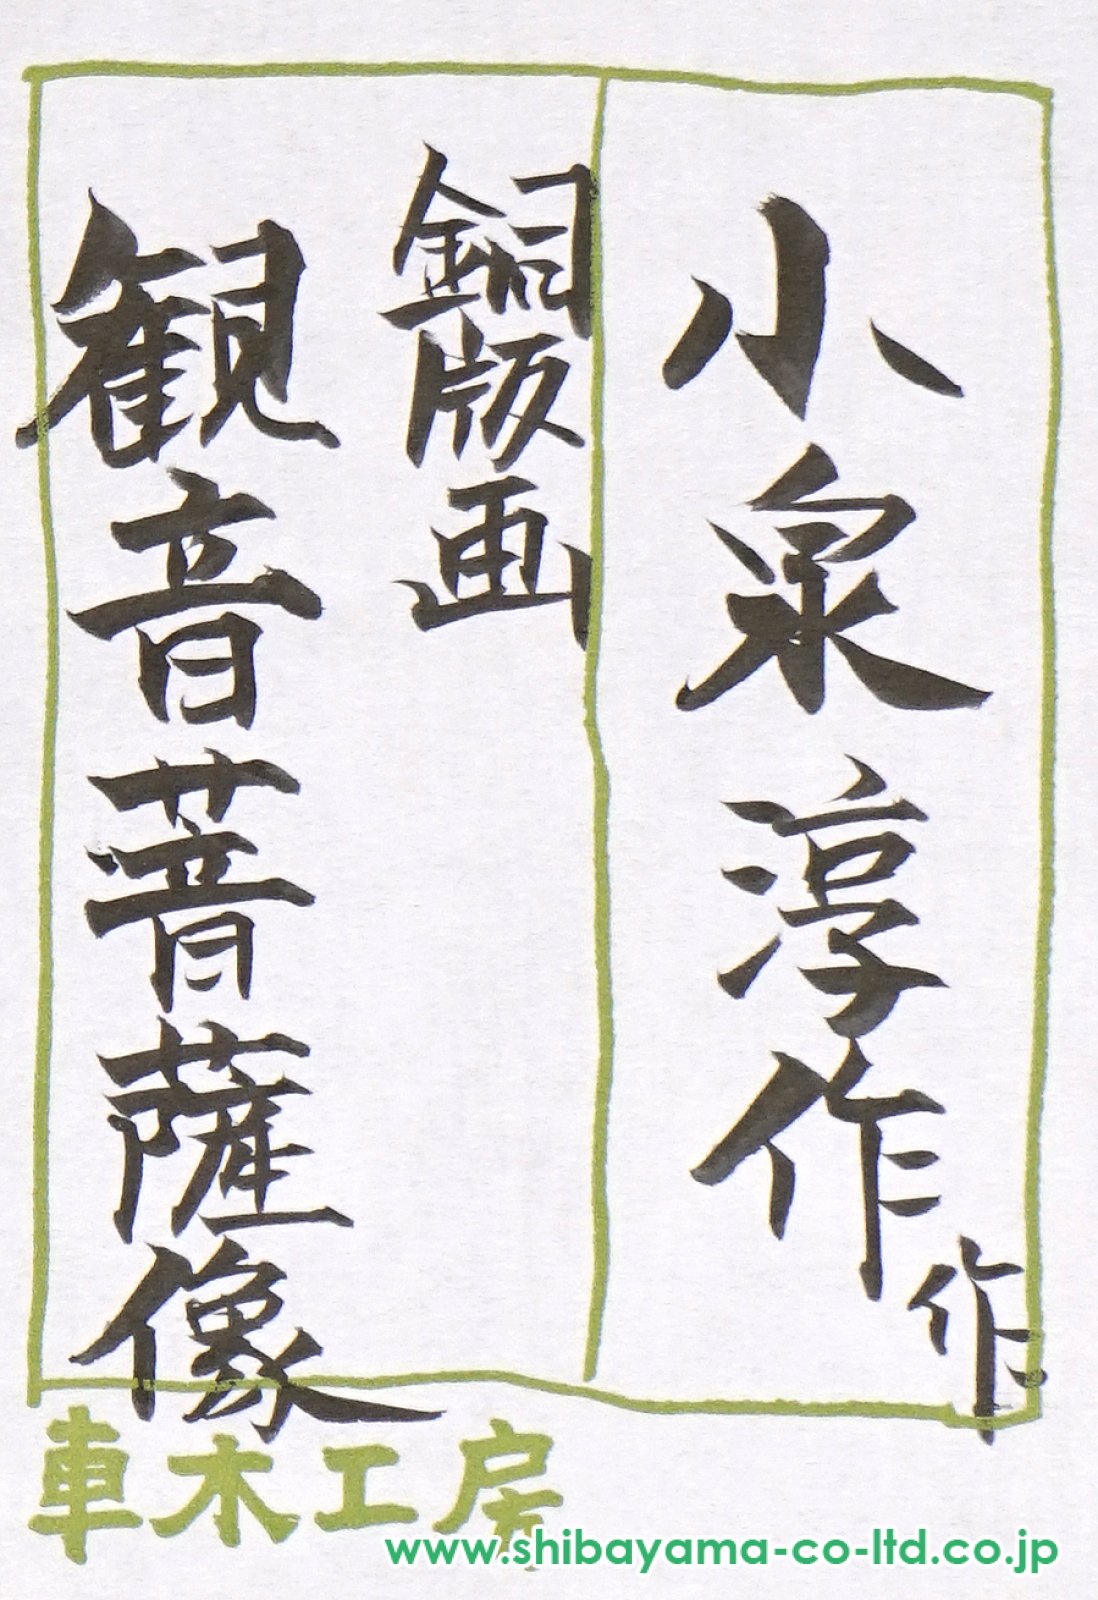 小泉淳作 作
銅版画
観音菩薩像
車木工房
www.shibayama-co-ltd.co.jp